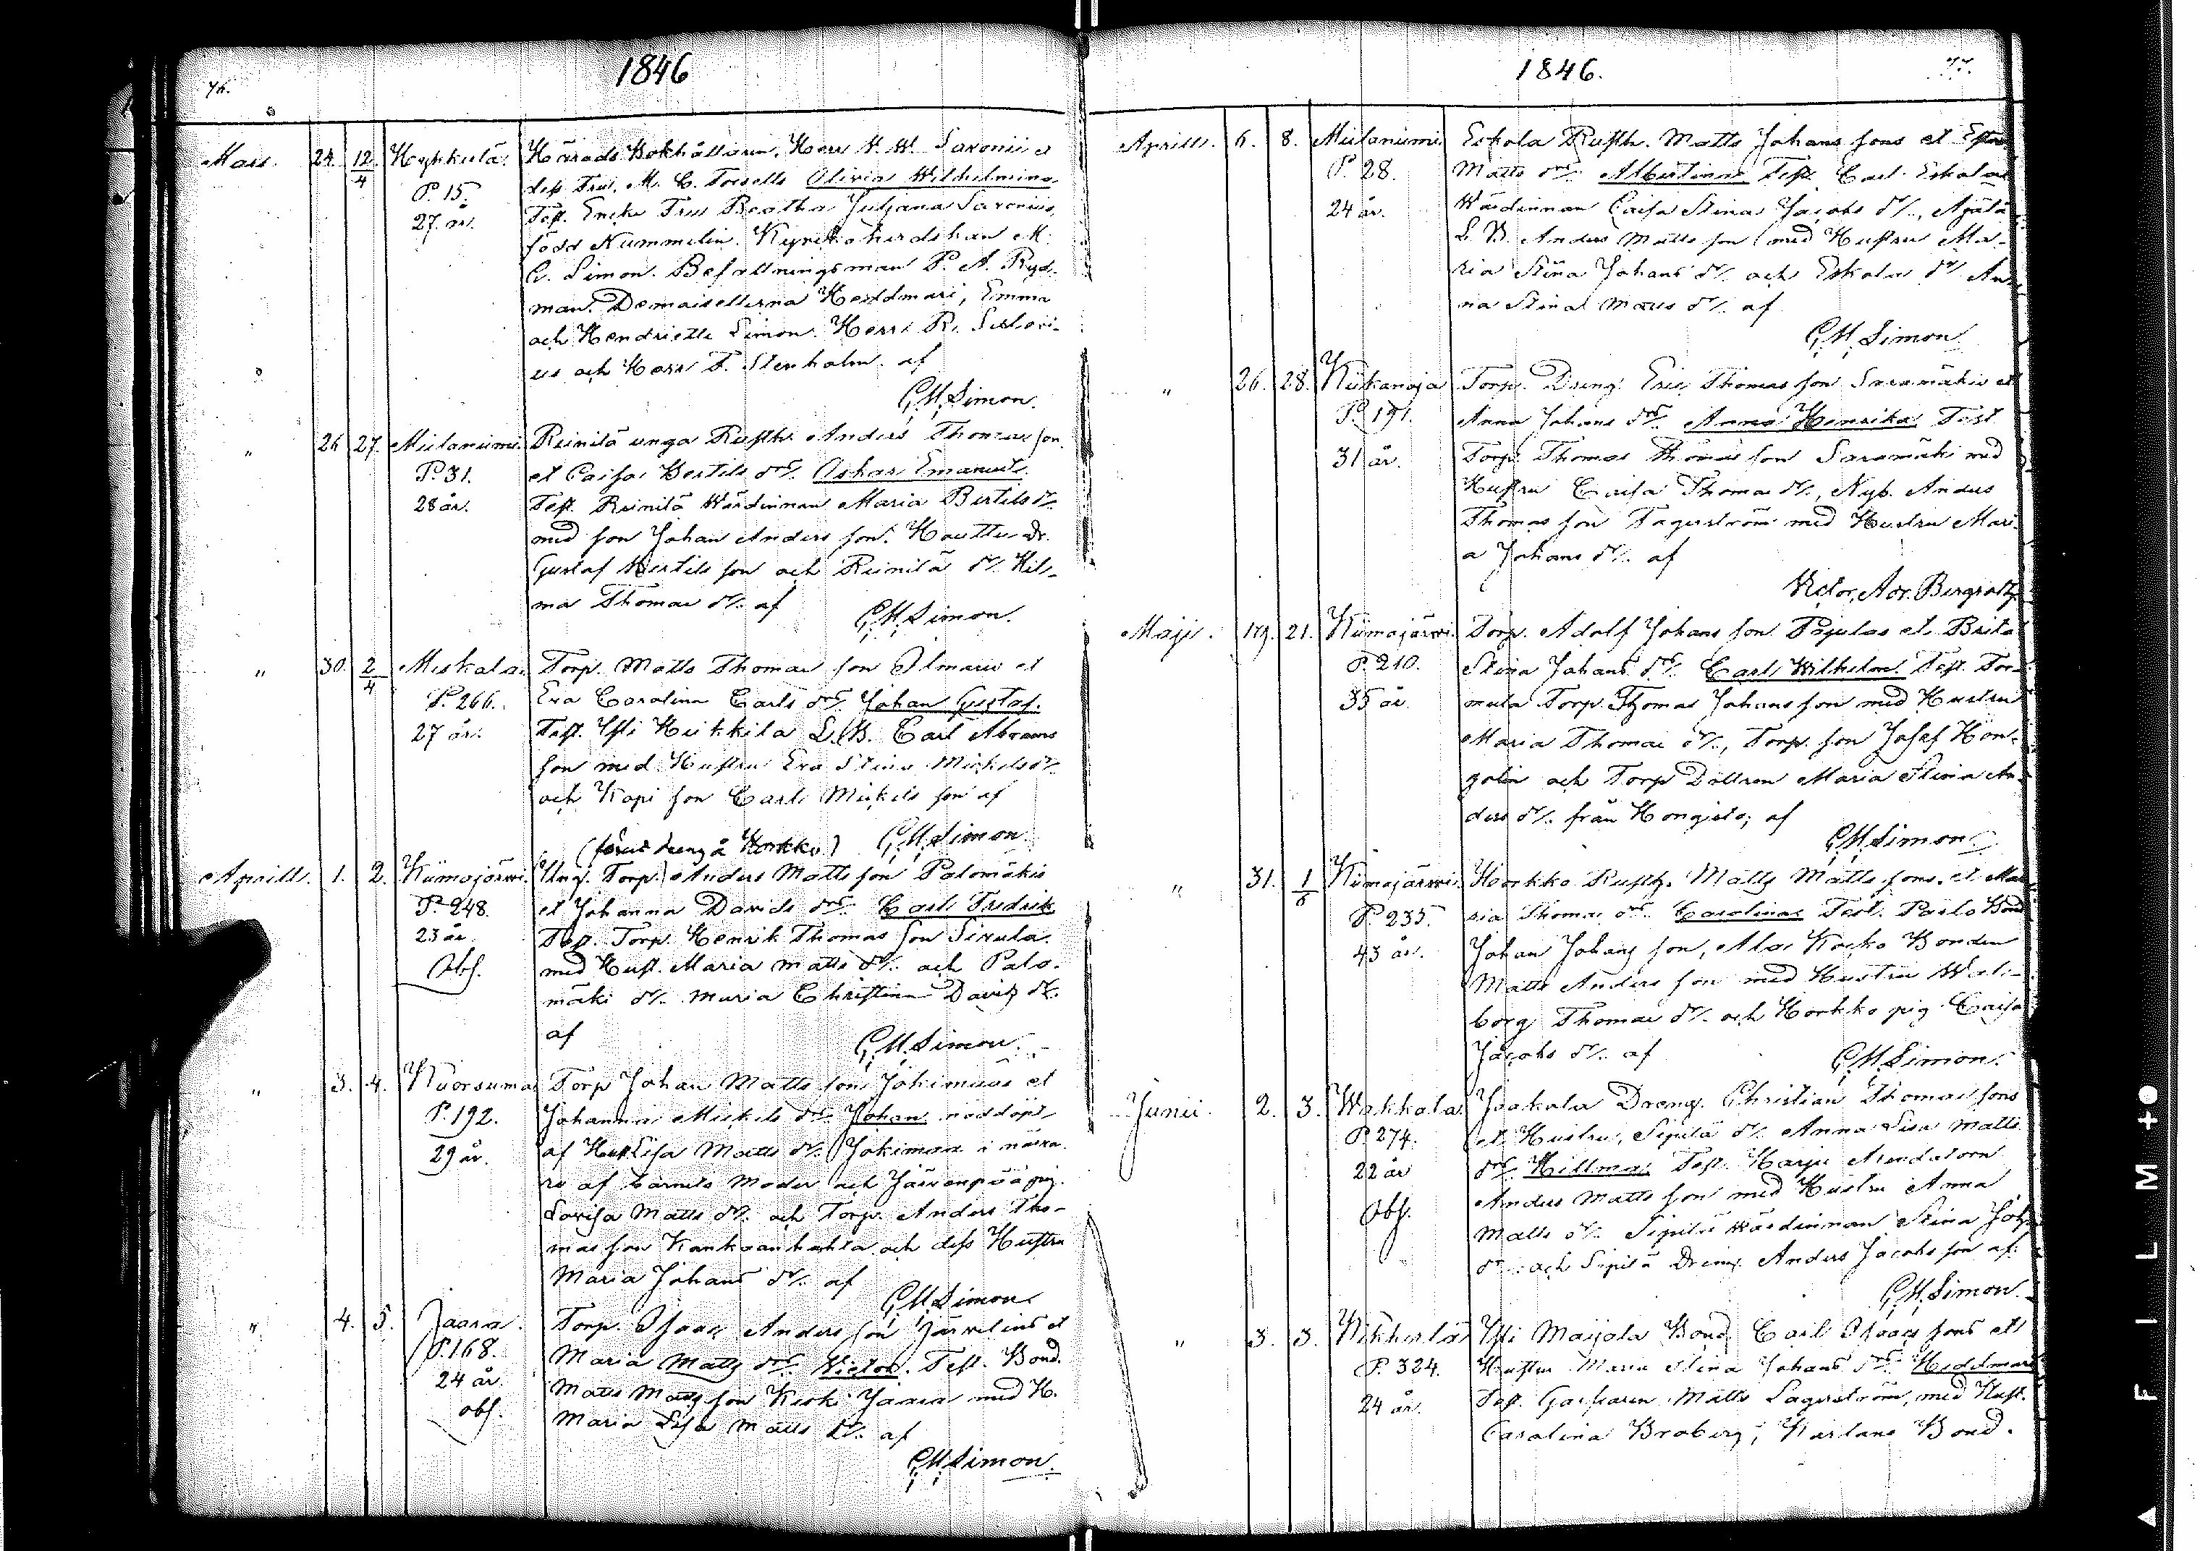 76.
1846
Mars. 24. 12/4 Kyhkylä. Härads Bokhållaren, Herr
P. 15. dess Fru, M. C. Forsells Olivia Wilhelmina.
27. år. Test. Enke Fru Beatha Juliana Savonius,
född Nummelin. Kyrkoherdskan M.
C. Simon. Befallningsman P. A. Ryd-
man. Demoisellerna Heddmari, Emma
och Hendriette Simon. Herr R.
us och Herr F. Stenholm. af
G.M.Simon.
" 26 27. Miilunumi. Reinilä unga Rusth. Anders Thomas son
P. 31. et Caisa Bertils dr. Oskar Emanuel.
28 år. Test. Reinilä Wärdinnan Maria Bertils dr.
med son Johan Anders son. dr.
Gustaf Bertils son och Reinilä dr. Hil-
ma Thomae dr. af
G.M.Simon.
" 30. 2/4 Miskala. Torp. Matts Thomae son Ilmarin et
P. 266. Eva Carolina Carls dr. Johan Gustaf.
27 år. Test. Isti Heikkila L.B. Carl Abrams
son med Hustru Eva Stina Mickels dr.
och Kapi son Carl Mickels son af
(förut dreng å Korkko) G.M.Simon.
Aprill. 1. 2. Kiimajärvi. Ung. Torp. Anders Matts son Palomäkis
P. 248. et Johanna Davids dr. Carl Fredrik
23 år Test. Torp. Henrik Thomas son Sirula.
Obs. med Hust. Maria Matts dr. och Palo-
mäki dr. Maria Christina Davids dr.
af
G.M.Simon.
" 3. 4. Kuorsuma Torp Johan Matts son Jokimaas et
P. 192. Johanna Mickels dr. Johan nöddöpt
29 år. af Hust. Lisa Matts dr. Jokimaa i närva-
ro af barnets moder och Järvenpää pig.
Lovisa Matts dr. och Torp. Anders Tho-
mas son Kankaanhuhta och dess Hustru
Maria Johans dr. af
G.M.Simon
" 4. 5. Jaara. Torp. Isaac Anders son Järvelins et
P. 168. Maria Matts dr. Victor. Test. Bond.
24 år. Matts Matts son Keski Jaara med H.
obs. Maria Lisa Matts dr. af
G.M.Simon.
1846. 77.
Aprill. 6. 8. Miilunumi Eskola Rusth. Matts Johans sons et
P. 28. Matts dr. Albertina Test. Carl Eskolas
24 år. Wärdinnan Caisa Stina Jacobs dr., Ajälä
L.B. Anders Matts son med Hustru Ma-
ria Stina Johans dr. och Eskolas dr. An-
na Stina Matts dr. af
G.M.Simon
" 26. 28. Kiikanoja Torp. Dreng Eric Thomas son Saramäkis et
P. 191. Anna Johans dr. Anna Henrika. Test.
31 år. Torp. Thomas Thomas son Saramäki med
Hustru Caisa Thomae dr., Nyb. Anders
Thomas son Fagerström med Hustru Mari-
a Johans dr. af
Victor, Adr. Bergroth
Maji. 19. 21. Kiimajärvi. Torp. Adolf Johans son Pajulas et Brita
P. 210. Stina Johans dr. Carl Wilhelm. Test. Tor-
35 år mula Torp. Thomas Johans son med Hustru
Maria Thomae dr., Torp. son Josef Hon-
golin och Torp Dottren Maria Stina An-
ders dr. från Hongisto, af
G.M.Simon.
" 31. 1/6 Kiimajärvi. Korkko Rusth. Matts Matts sons. et Ma-
P. 235. ria Thomae dr. Carolina. Test. Parlo Bond
43 år. Johan Johans son, Ala Korko Bonden
Matts Anders son med Hustru Wal-
borg Thomae dr. och Korkko pig Caisa
Jacobs dr. af
G.M.Simon.
Junii. 2. 3. Wakkala Jaakala Dreng. Christian Thomas sons
P. 274. et Hustru, Sipilä dr. Anna Lisa Matts
22 år dr. Hillma. Test. Harju Arendatorn
Obs. Anders Matts son med Hustru Anna
Matts dr. Sipilä Wärdinnan Stina Joh
dr. och Sipilä Dreng. Anders Jacobs son af.
G.M.Simon.
" 3. 3. Kikkerlä Isti Maijala Bond. Carl Isaacs sons et
P. 324. Hustru Maria Stina Johans dr. Heddmari
24 år. Test. Garfvaren Matts Lagerström, med Hust.
Carolina Broberg, Karlano Bond.
FILM